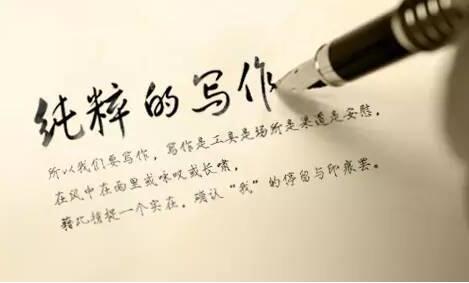 纯粹的写作
所以我们要写作，写作是工具是场所是渠道是安慰，
在风中在雨里或咏叹或长啸，
藉此捕捉一个实在，确认“我”的停留与印痕罢。